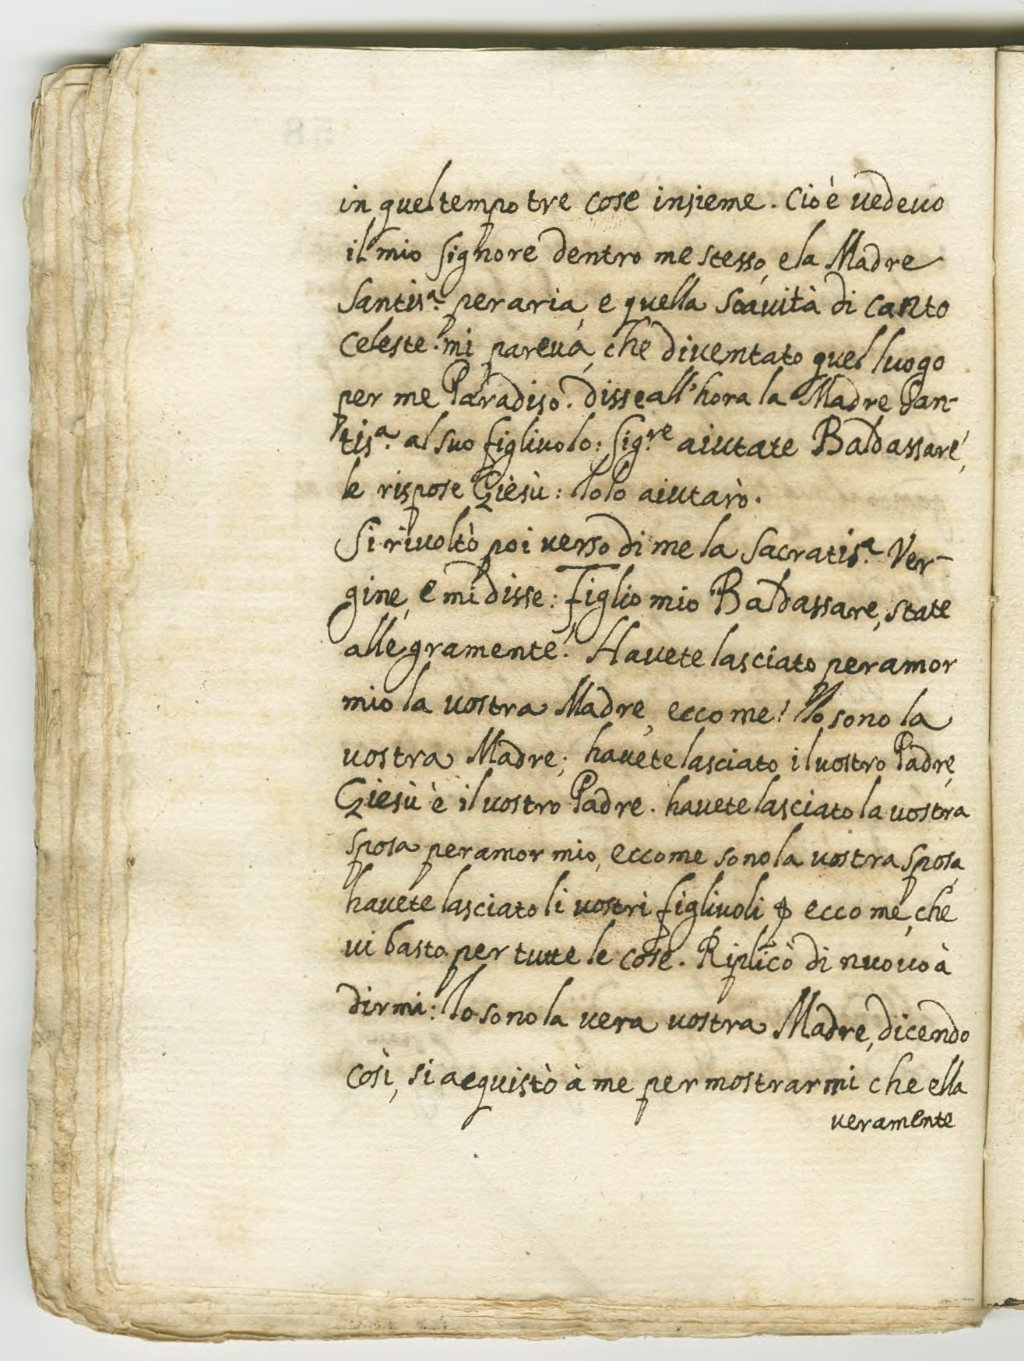 in quel tempo tre cose insieme. Cioè uedeuo
il mio Signore dentro me stesso, e la Madre
Santis.ª per aria, e quella soauità di canto
Celeste. mi pareua, che diuentato quel luogo
per me Paradiso. disse all'hora la Madre San-
tis.ª al suo figliuolo: Sig.re aiutate Baldassare,
le rispose Giesù: Io lo aiutarò.
Si riuoltò poi uerso di me la Sacratis.ª Ver-
gine, e mi disse: Figlio mio Baldassare, state
allegramente! Hauete lasciato per amor
mio la uostra Madre, ecco me! Io sono la
uostra Madre; hauete lasciato il uostro Padre,
Giesù è il uostro Padre. hauete lasciato la uostra
sposa per amor mio, ecco me sono la uostra sposa,
hauete lasciato li uostri figliuoli ecco me, che
ui basto per tutte le cose. Riplicò di nuouo à
dirmi: Io sono la uera uostra Madre, dicendo
così, si acquistò à me per mostrarmi che ella
ueramente